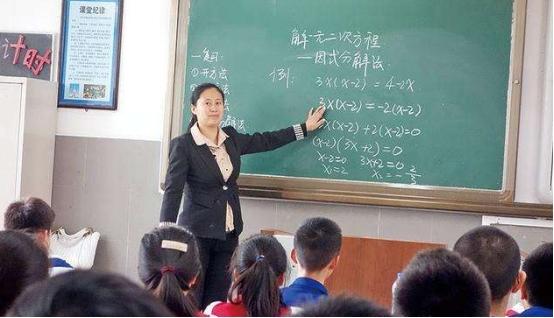 课堂纪律
计时
解一元二次方程
—因式分解法
一复习
①开方法
例:
3x(x-2)=4-2x
3x(x-2)=-2(x-2)
3x(x-2)+2(x-2)=0
(x-2)(3x+2)=0
x-2=0 3x+2=0
x₁=2 x₂=-2/3